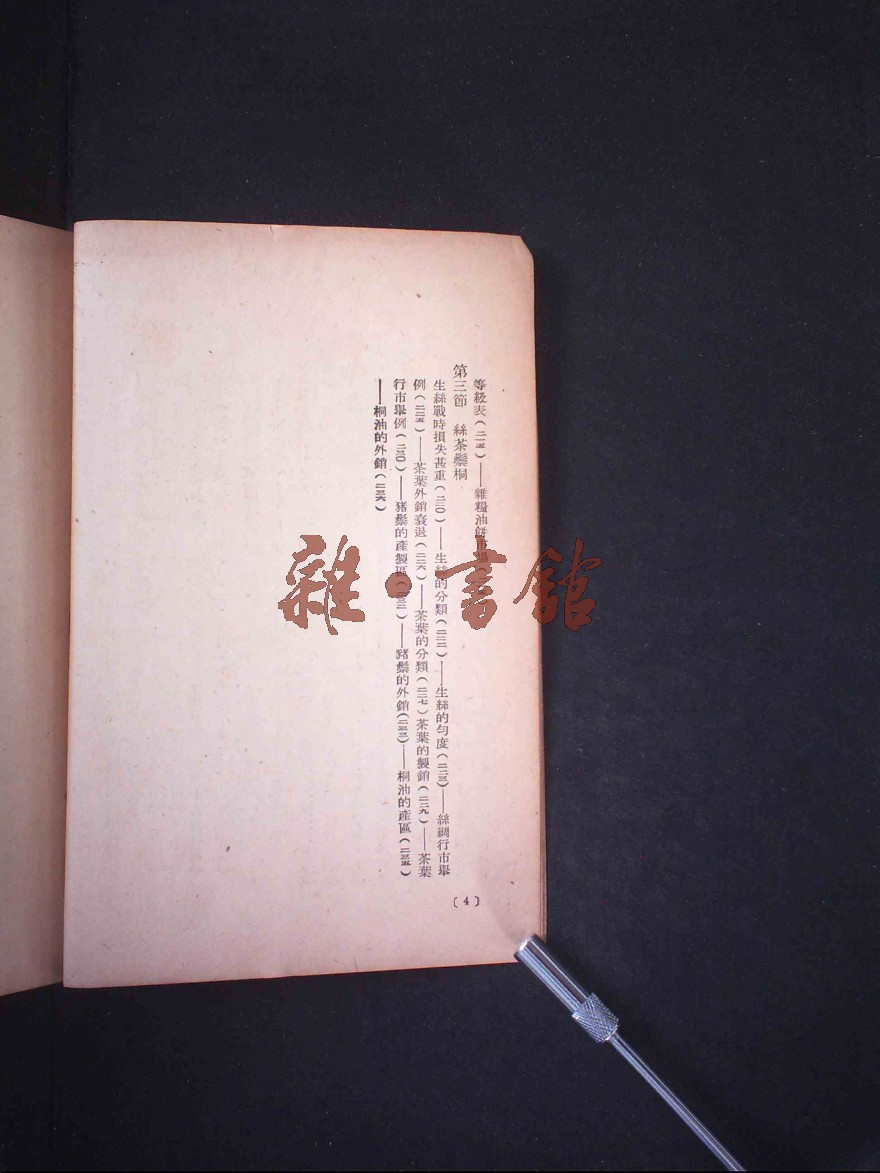 等級表(二一五)——雜糧油餅市
第三節 絲茶鬃桐
生絲戰時損失甚重(二二〇)——生絲的分類(二二二)——生絲的勻度(二二三)——絲綢行市舉
例(二二五)——茶葉外銷衰退(二二六)——茶葉的分類(二二七)茶葉的製銷(二二九)——茶葉
行市舉例(二三〇)——豬鬃的產製區(二三二)——豬鬃的外銷(二三三)——桐油的產區(二三五)
——桐油的外銷(二三六)
〔4〕
雜·書館